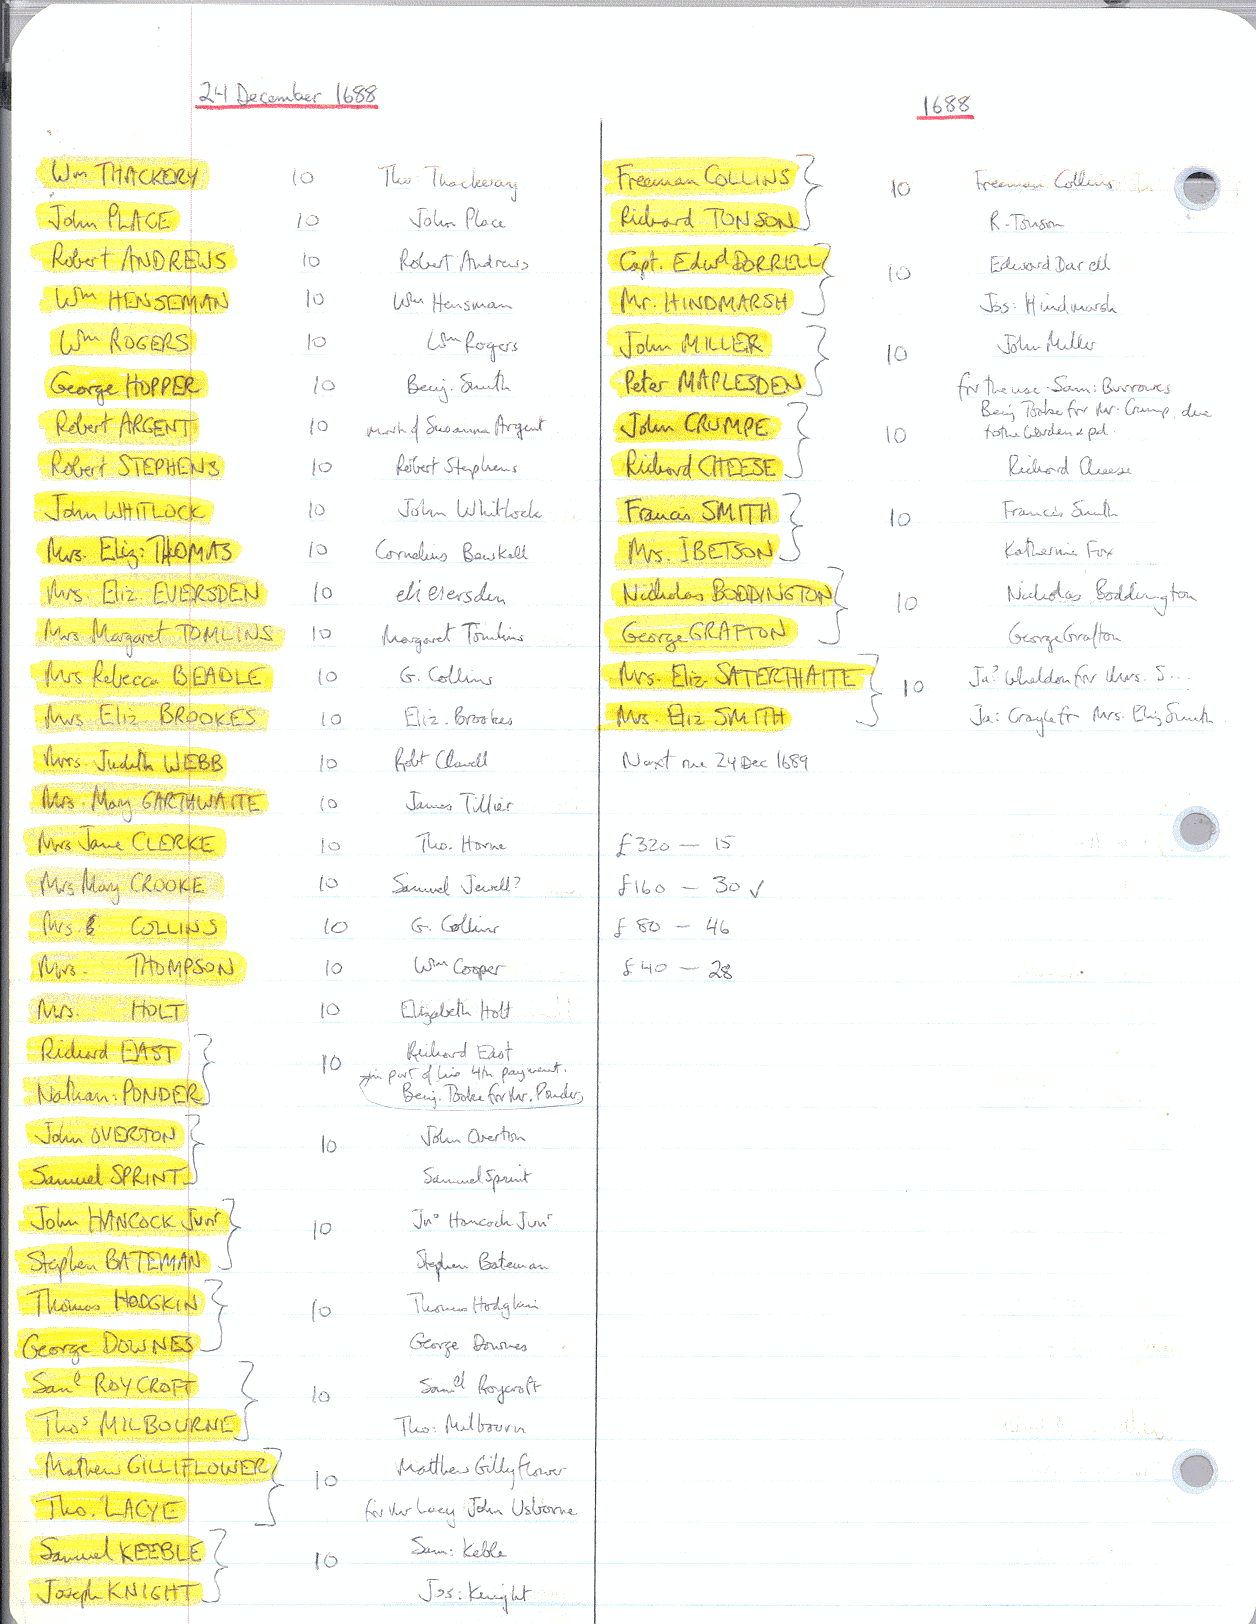 24 December 1688
Wm THACKERY 10 Tho Thackeray
John PLACE 10 John Place
Robert ANDREWS 10 Robert Andrews
Wm HENSEMAN 10 Wm Hensman
Wm ROGERS 10 Wm Rogers
George HOPPER 10 Benj. Smith
Robert ARGENT 10 mark of Susanna Argent
Robert STEPHENS 10 Robert Stephens
John WHITLOCK 10 John Whitlock
Mrs. Eliz: THOMAS 10 Cornelius
Mrs. Eliz EVERSDEN 10 eli
Mrs Margaret TOMLINS 10 Margaret Tomlins
Mrs Rebecca BEADLE 10 G. Collins
Mrs Eliz BROOKES 10 Eliz. Brookes
Mrs. Judith WEBB 10 Robt Clavell
Mrs. Mary GARTHWAITE 10 James Tillier
Mrs Jane CLERKE 10 Tho. Horne
Mrs Mary CROOKE 10 Samuel Jewell?
Mrs. COLLINS 10 G. Collins
Mrs. THOMPSON 10 Wm Cooper
Mrs. HOLT 10 Elizabeth Holt
Richard EAST 10 Richard East
in part of his 4th payment.
Nathan: PONDER Benj. Tooke for Mr. Ponder
John OVERTON 10 John Overton
Samuel SPRINT Samuel Sprint
John HANCOCK Junr 10 Jno Hancock Junr
Stephen BATEMAN Stephen Bateman
Thomas HODGKIN 10 Thomas Hodgkin
George DOWNES George Downes
Saml ROYCROFT 10 Samll Roycroft
Thos MILBOURNE Tho: Milbourn
Mathew GILLIFLOWER 10 Matthew Gillyflower
Tho. LACYE for Mr Lacy John Usborne
Samuel KEEBLE 10 Sam: Keble
Joseph KNIGHT Jos: Knight
1688
Freeman COLLINS 10 Freeman Collins
Richard TONSON R. Tonson
Capt. Edwd DORRELL 10 Edward Darell
Mr. HINDMARSH Jos: Hindmarsh
John MILLER 10 John Miller
Peter MAPLESDEN for the use Sam: Burrowes
Benj Tooke for Mr. Crump, due
John CRUMPE 10 to the Warden & pd.
Richard CHEESE Richard Cheese
Francis SMITH 10 Francis Smith
Mrs. IBETSON Katherine Fox
Nicholas BODDINGTON 10 Nicholas Boddington
George GRAFTON George Grafton
Mrs. Eliz SATERTHAITE 10 Jas Wheldon for Mrs. S...
Mrs. Eliz SMITH Ja: for Mrs. Eliz Smith
Next one 24 Dec 1689
£320 — 15
£160 — 30 ✓
£80 — 46
£40 — 28